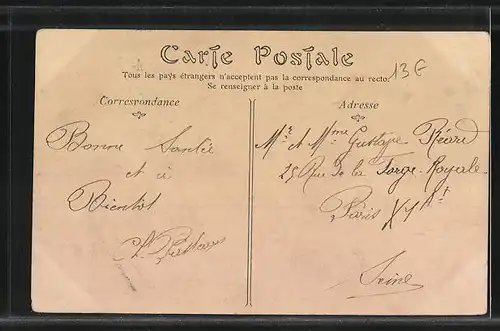 Carte Postale
Tous les pays étrangers n'acceptent pas la correspondance au recto.
Se renseigner à la poste
13 €
Correspondance
Adresse
Bonne Santée
et à
Bientôt
Mr et Mme Gustave
25 Rue de la Forge-Royale
Paris
Seine